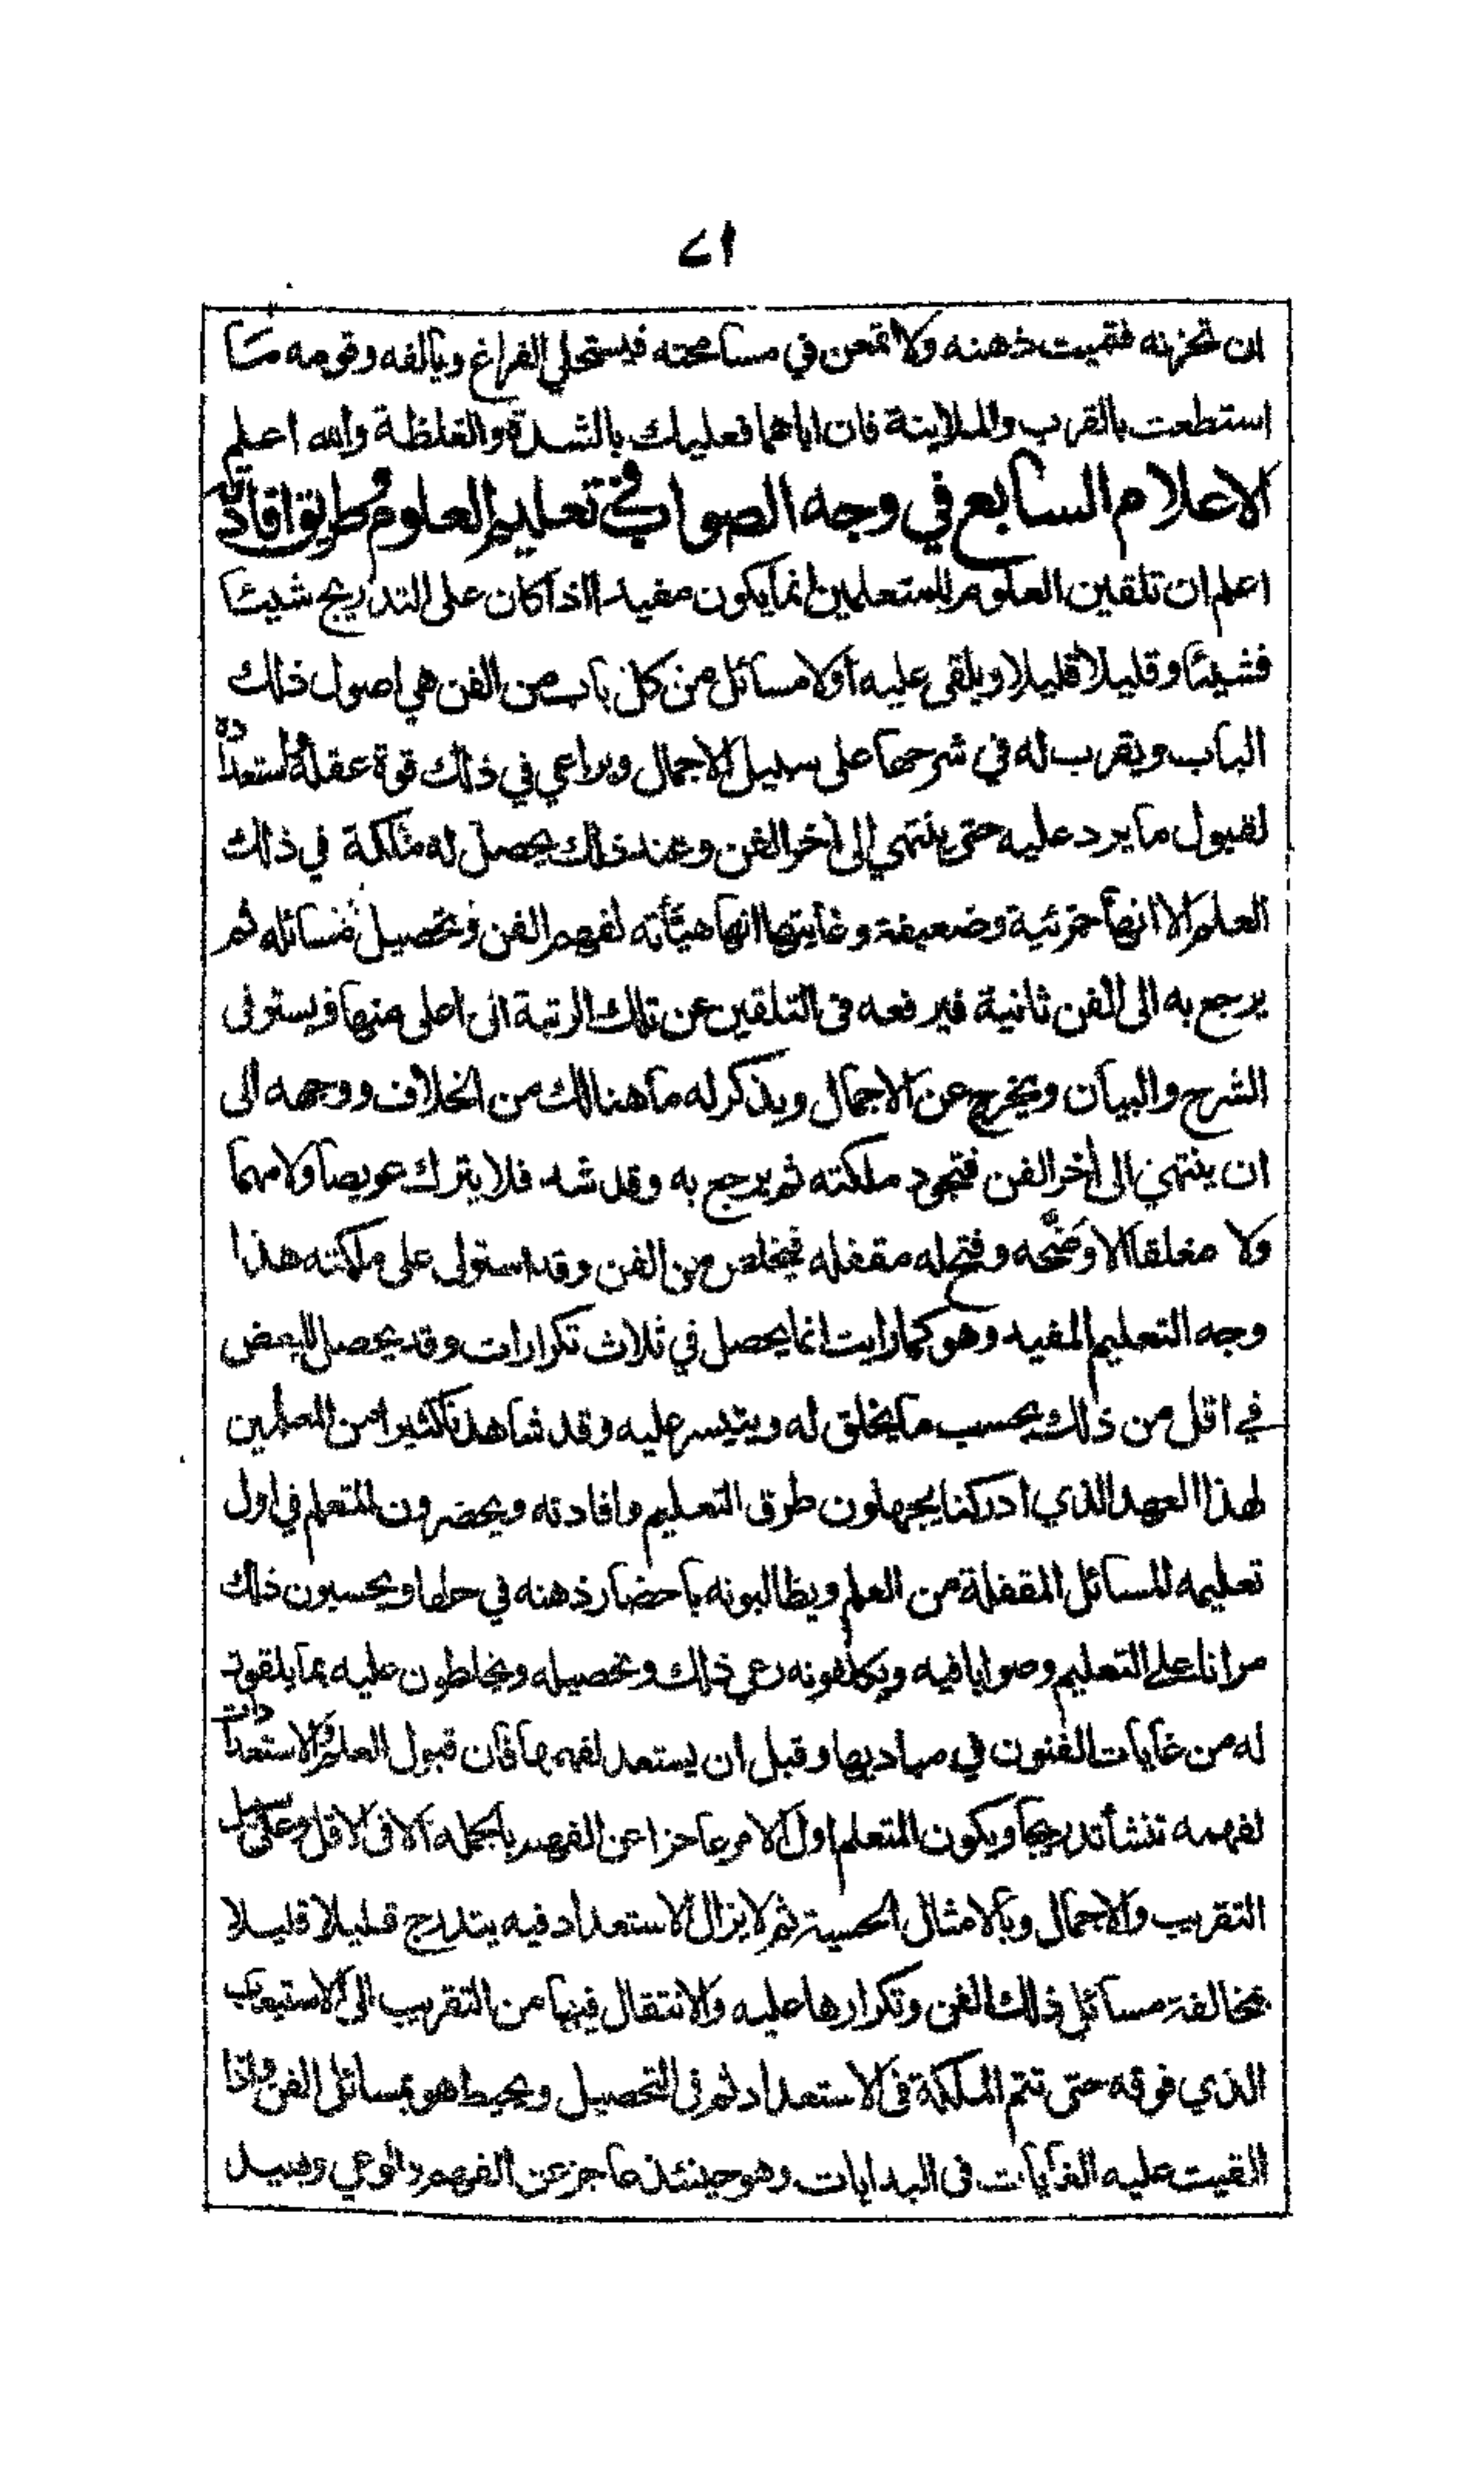 ٧١
ان تحزنه فتميت ذهنه ولا تمعن في مسامحته فيستحلي الفراغ ويألفه وقومه ما
استطعت بالقرب والملاينة فان اباهما فعليك بالشدة والغلظة والله اعلم
الاعلام السابع في وجه الصواب في تعليم العلوم وطريق افادته
اعلم ان تلقين العلوم للمتعلمين انما يكون مفيدا اذا كان على التدريج شيئا
فشيئا وقليلا قليلا ويلقى عليه اولا مسائل من كل باب من الفن هي اصول ذلك
الباب ويقرب له في شرحها على سبيل الاجمال ويراعي في ذلك قوة عقله واستعداده
لقبول ما يرد عليه حتى ينتهي إلى أخر الفن وعند ذلك يحصل له ملكة في ذلك
العلم الا انها جزئية وضعيفة وغايتها انها هيأته لفهم الفن وتحصيل مسائله ثم
يرجع به الى الفن ثانية فيرفعه في التلقين عن تلك الرتبة الى اعلى منها ويستوفى
الشرح والبيان ويخرج عن الاجمال ويذكر له ما هنالك من الخلاف ووجهه الى
ان ينتهي الى أخر الفن فتجود ملكته ثم يرجع به وقد شد فلا يترك عويصا ولا مهما
ولا مغلقا الا وضحه وفتح له مقفله فيخلص من الفن وقد استولى على ملكته هذا
وجه التعليم المفيد وهو كما رايت انما يحصل في ثلاث تكرارات وقد يحصل للبعض
في اقل من ذلك بحسب ما يخلق له ويتيسر عليه وقد شاهدنا كثيرا من المعلمين
لهذا العهد الذي ادركنا يجهلون طرق التعليم وافادته ويحضرون للمتعلم في اول
تعليمه المسائل المقفلة من العلم ويطالبونه باحضار ذهنه في حلها ويحسبون ذلك
مرانا على التعليم وصوابا فيه ويكلفونه رعي ذلك وتحصيله ويخلطون عليه بما يلقون
له من غايات الفنون في مباديها وقبل ان يستعد لفهمها فان قبول العلم والاستعدادات
لفهمه تنشأ تدريجا ويكون المتعلم اول الامر عاجزا عن الفهم بالجملة الا في الاقل وعلى سبيل
التقريب والاجمال وبالامثال الحسية ثم لا يزال الاستعداد فيه يتدرج قليلا قليلا
بمخالفة مسائل ذلك الفن وتكرارها عليه والانتقال فيها من التقريب الى الاستيعاب
الذي فوقه حتى تتم الملكة في الاستعداد ثم في التحصيل ويحيط هو بمسائل الفن واذا
القيت عليه الغايات في البدايات وهو حينئذ عاجز عن الفهم والوعي وبعيد